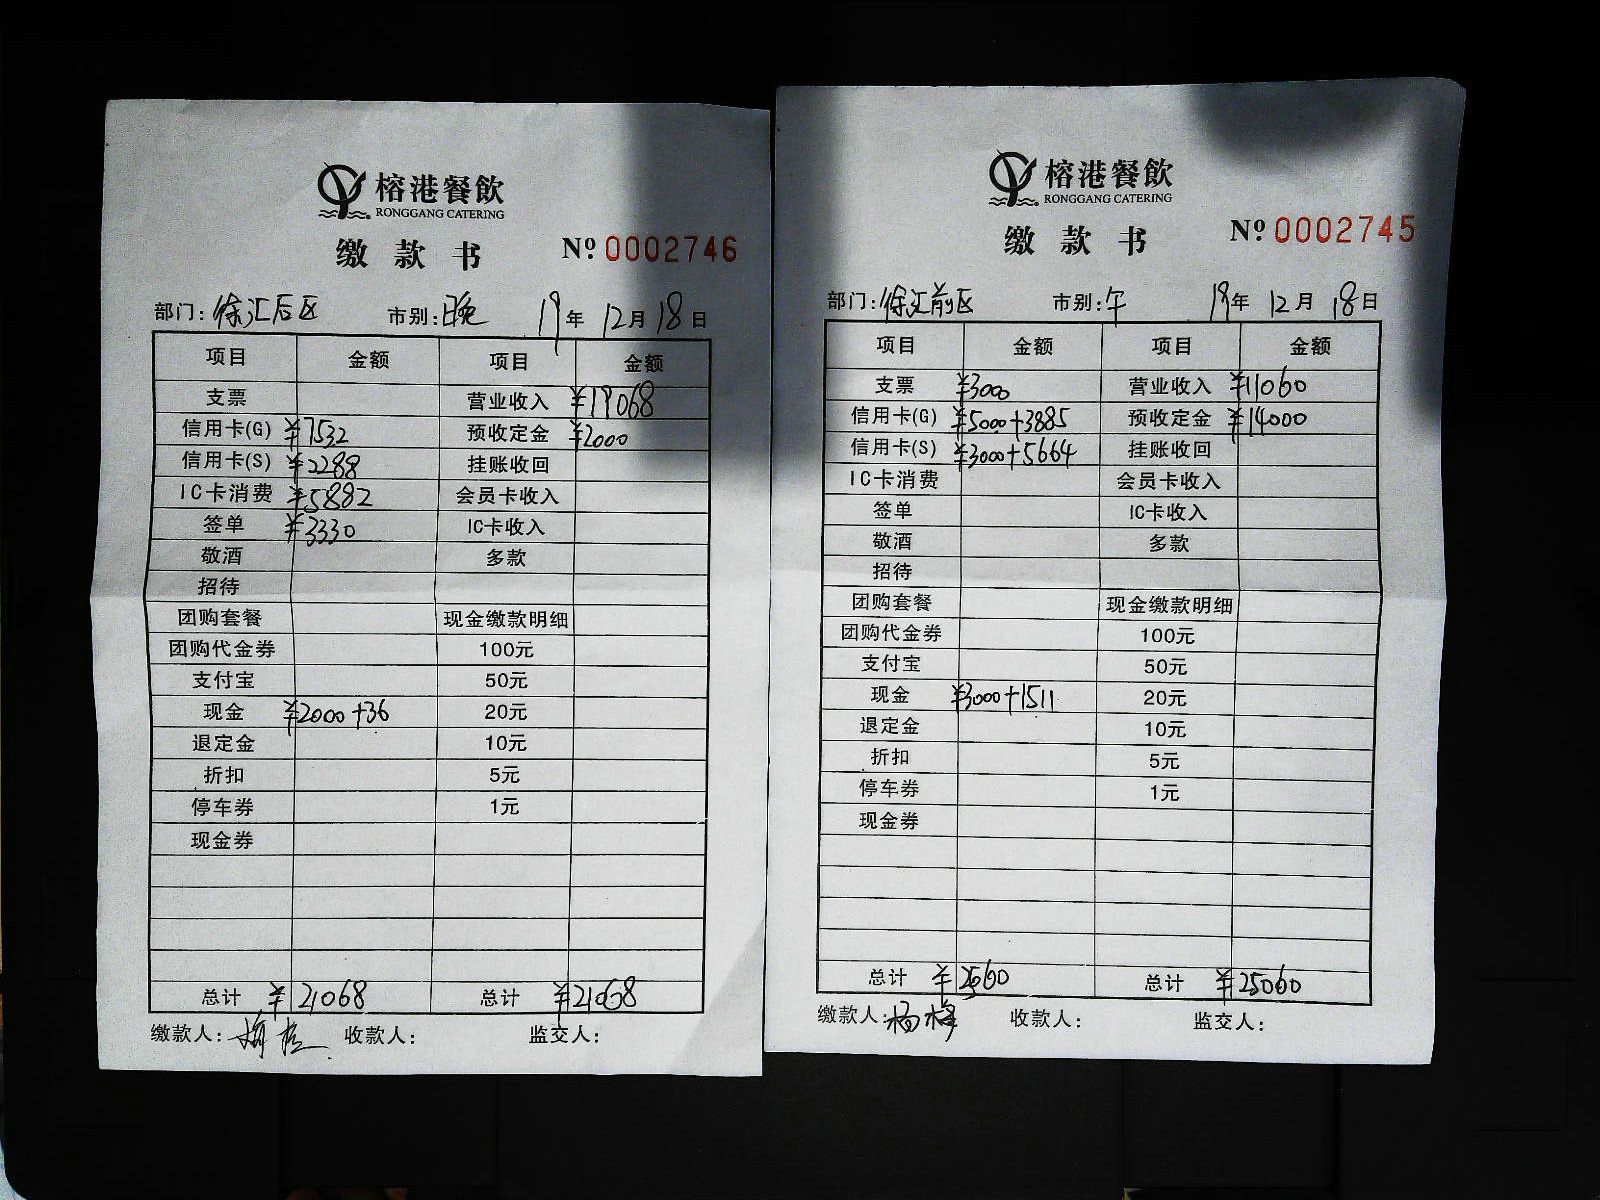 榕港餐飲
RONGGANG CATERING
缴款书 Nº 0002746
部门: 徐汇后区 市别: 晚 19年 12月 18日
项目 金额 项目 金额
支票 营业收入 ¥19068
信用卡(G) ¥7532 预收定金 ¥2000
信用卡(S) ¥2288 挂账收回
IC卡消费 ¥5882 会员卡收入
签单 ¥3330 IC卡收入
敬酒 多款
招待
团购套餐 现金缴款明细
团购代金券 100元
支付宝 50元
现金 ¥2000+36 20元
退定金 10元
折扣 5元
停车券 1元
现金券
总计 ¥21068 总计 ¥21068
缴款人: 收款人: 监交人:
榕港餐飲
RONGGANG CATERING
缴款书 Nº 0002745
部门: 徐汇前区 市别: 午 19年 12月 18日
项目 金额 项目 金额
支票 ¥3000 营业收入 ¥11060
信用卡(G) ¥5000+3885 预收定金 ¥14000
信用卡(S) ¥3000+5664 挂账收回
IC卡消费 会员卡收入
签单 IC卡收入
敬酒 多款
招待
团购套餐 现金缴款明细
团购代金券 100元
支付宝 50元
现金 ¥3000+1511 20元
退定金 10元
折扣 5元
停车券 1元
现金券
总计 ¥25060 总计 ¥25060
缴款人: 杨梅 收款人: 监交人: